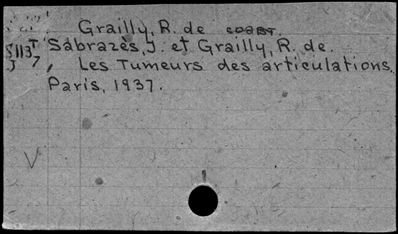 Grailly, R. de
Sabrazès, J. et Grailly, R. de.
Les Tumeurs des articulations.
Paris, 1937.